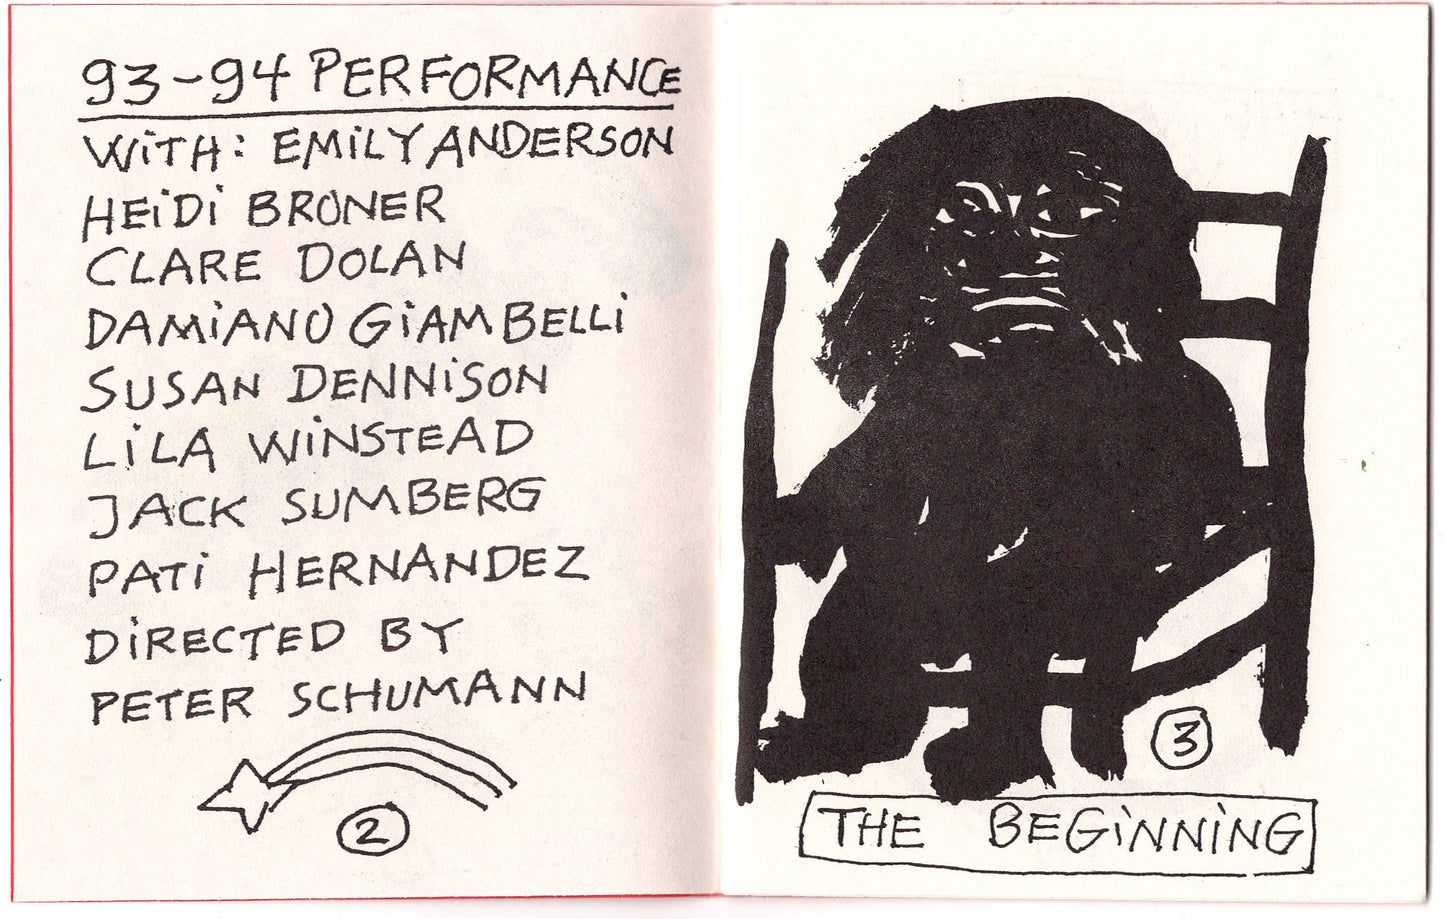 93-94 PERFORMANCE
WiTH: EMiLY ANDERSON
HEiDi BRONER
CLARE DOLAN
DAMiANO GiAMBELLi
SUSAN DENNiSON
LiLA WiNSTEAD
JACK SUMBERG
PATi HERNANDEZ
DiRECTED BY
PETER SCHUMANN
2
3
THE BEGiNNiNG